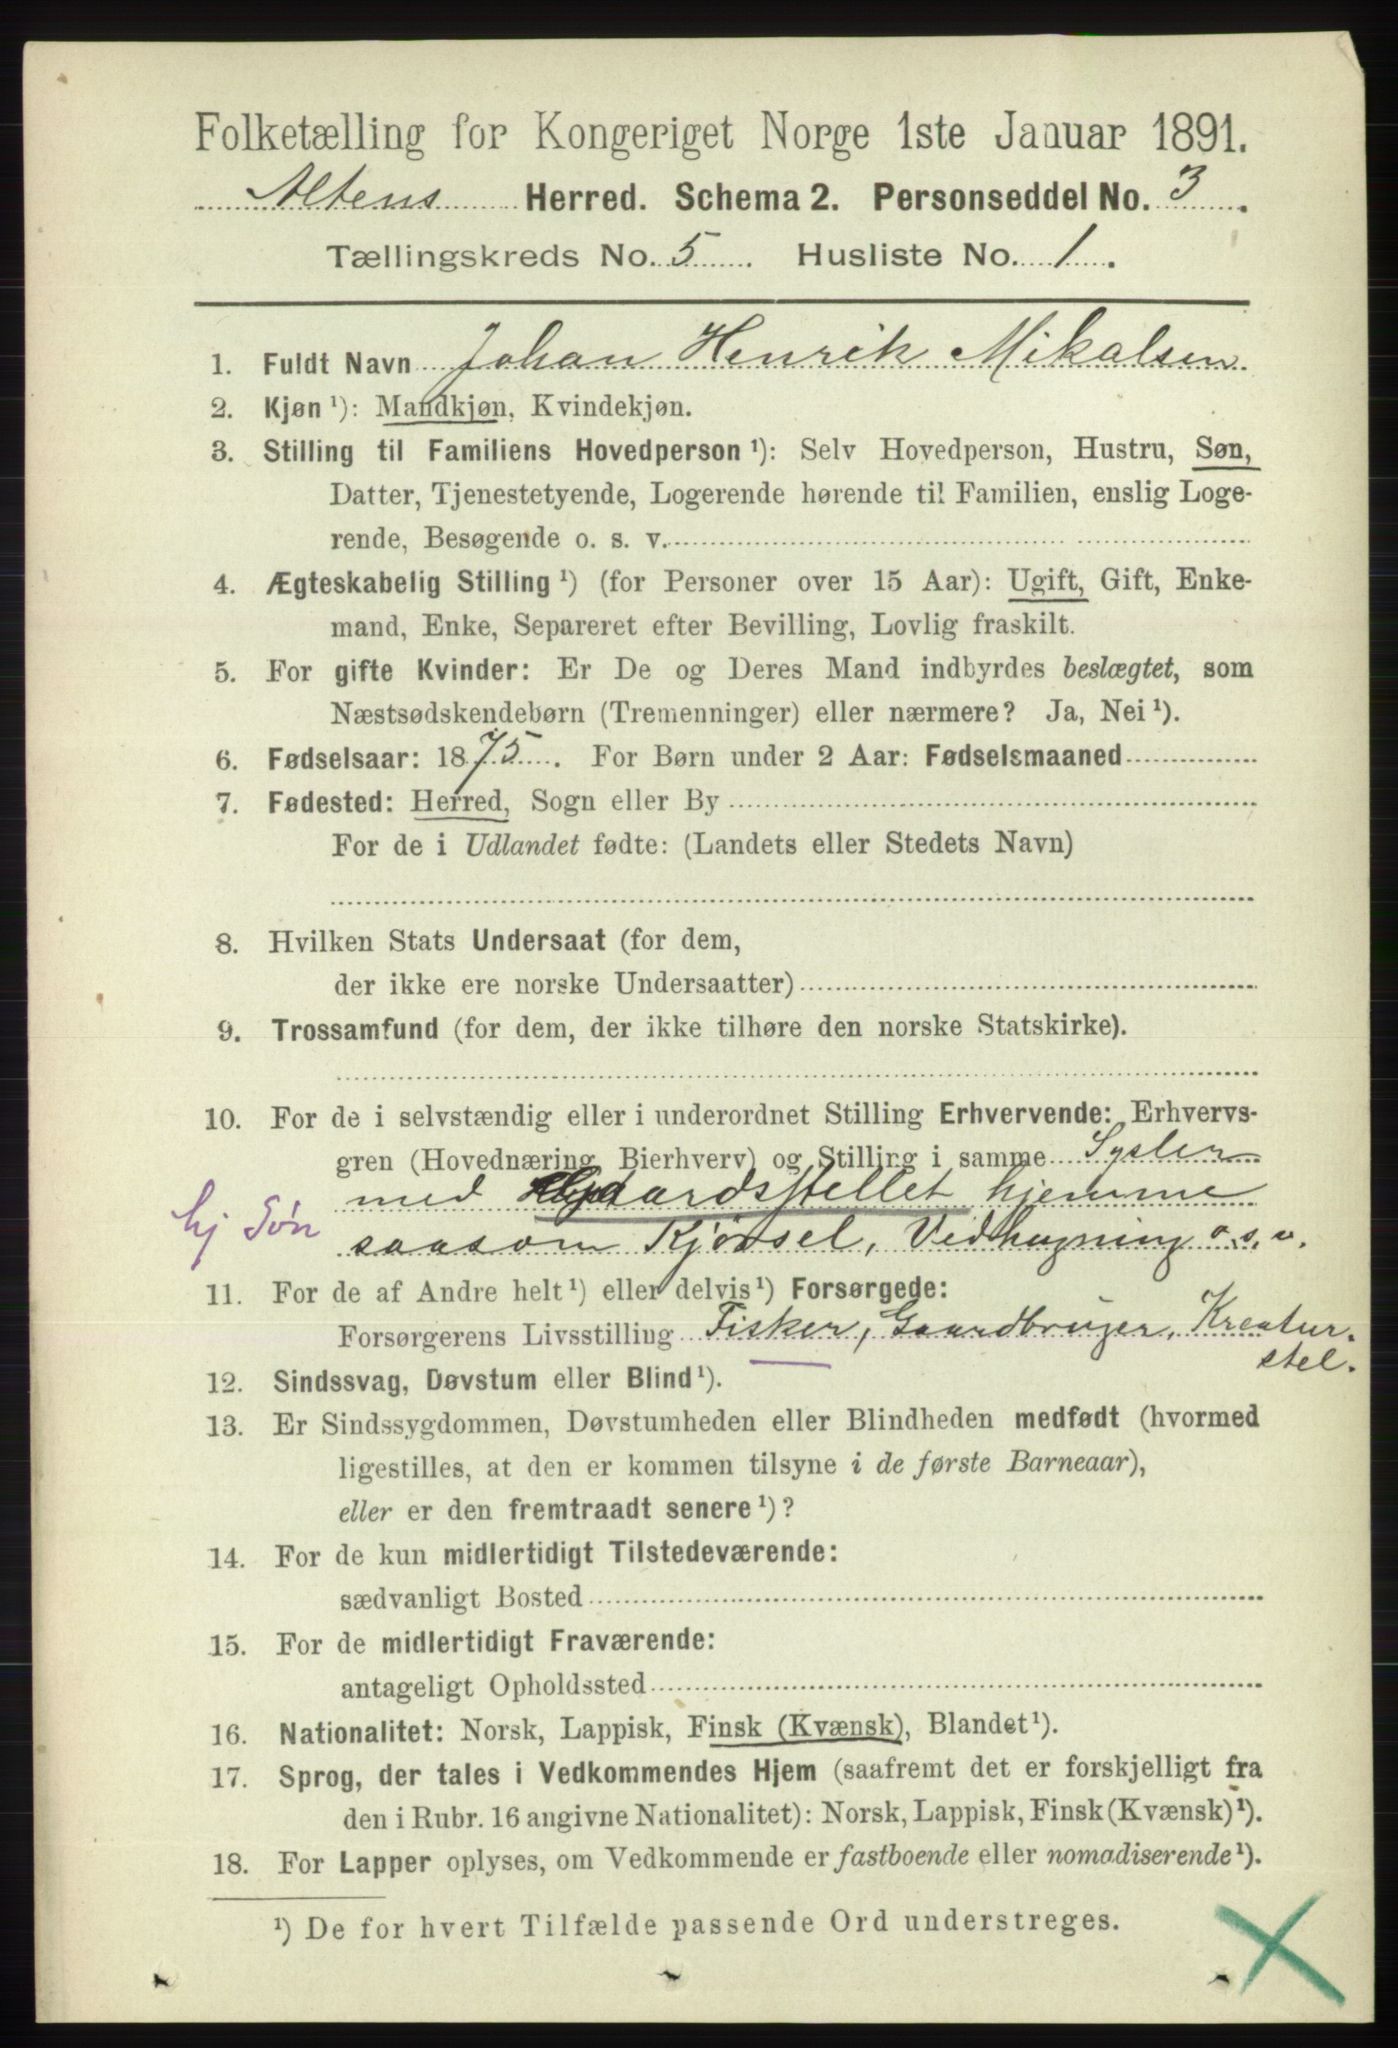 Folketælling for Kongeriget Norge 1ste Januar 1891.
Altens Herred. Schema 2. Personseddel No. 3.
Tællingskreds No. 5. Husliste No. 1.
1. Fuldt Navn Johan Henrik Mikalsen
2. Kjøn ¹): Mandkjøn, Kvindekjøn.
3. Stilling til Familiens Hovedperson ¹): Selv Hovedperson, Hustru, Søn,
Datter, Tjenestetyende, Logerende hørende til Familien, enslig Loge-
rende, Besøgende o. s. v.
4. Ægteskabelig Stilling ¹) (for Personer over 15 Aar): Ugift, Gift, Enke-
mand, Enke, Separeret efter Bevilling, Lovlig fraskilt.
5. For gifte Kvinder: Er De og Deres Mand indbyrdes beslægtet, som
Næstsødskendebørn (Tremenninger) eller nærmere? Ja, Nei ¹).
6. Fødselsaar: 1875. For Børn under 2 Aar: Fødselsmaaned
7. Fødested: Herred, Sogn eller By
For de i Udlandet fødte: (Landets eller Stedets Navn)
8. Hvilken Stats Undersaat (for dem,
der ikke ere norske Undersaatter)
9. Trossamfund (for dem, der ikke tilhøre den norske Statskirke).
10. For de i selvstændig eller i underordnet Stilling Erhvervende: Erhvervs-
gren (Hovednæring, Bierhverv) og Stilling i samme Sysler
med Gaardsstellet hjemme
hj Søn
saasom Kjørsel, Vedhugning o. s. v.
11. For de af Andre helt ¹) eller delvis ¹) Forsørgede:
Forsørgerens Livsstilling Fisker, Gaardbruger, Kreatur-
stel.
12. Sindssvag, Døvstum eller Blind ¹).
13. Er Sindssygdommen, Døvstumheden eller Blindheden medfødt (hvormed
ligestilles, at den er kommen tilsyne i de første Barneaar),
eller er den fremtraadt senere ¹)?
14. For de kun midlertidigt Tilstedeværende:
sædvanligt Bosted
15. For de midlertidigt Fraværende:
antageligt Opholdssted
16. Nationalitet: Norsk, Lappisk, Finsk (Kvænsk), Blandet ¹).
17. Sprog, der tales i Vedkommendes Hjem (saafremt det er forskjelligt fra
den i Rubr. 16 angivne Nationalitet): Norsk, Lappisk, Finsk (Kvænsk) ¹).
18. For Lapper oplyses, om Vedkommende er fastboende eller nomadiserende ¹).
¹) De for hvert Tilfælde passende Ord understreges.